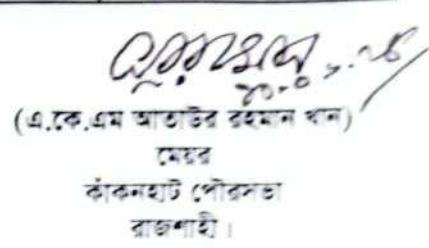 (এ.কে.এম আতাউর রহমান খান)
মেয়র
কাঁকনহাট পৌরসভা
রাজশাহী।